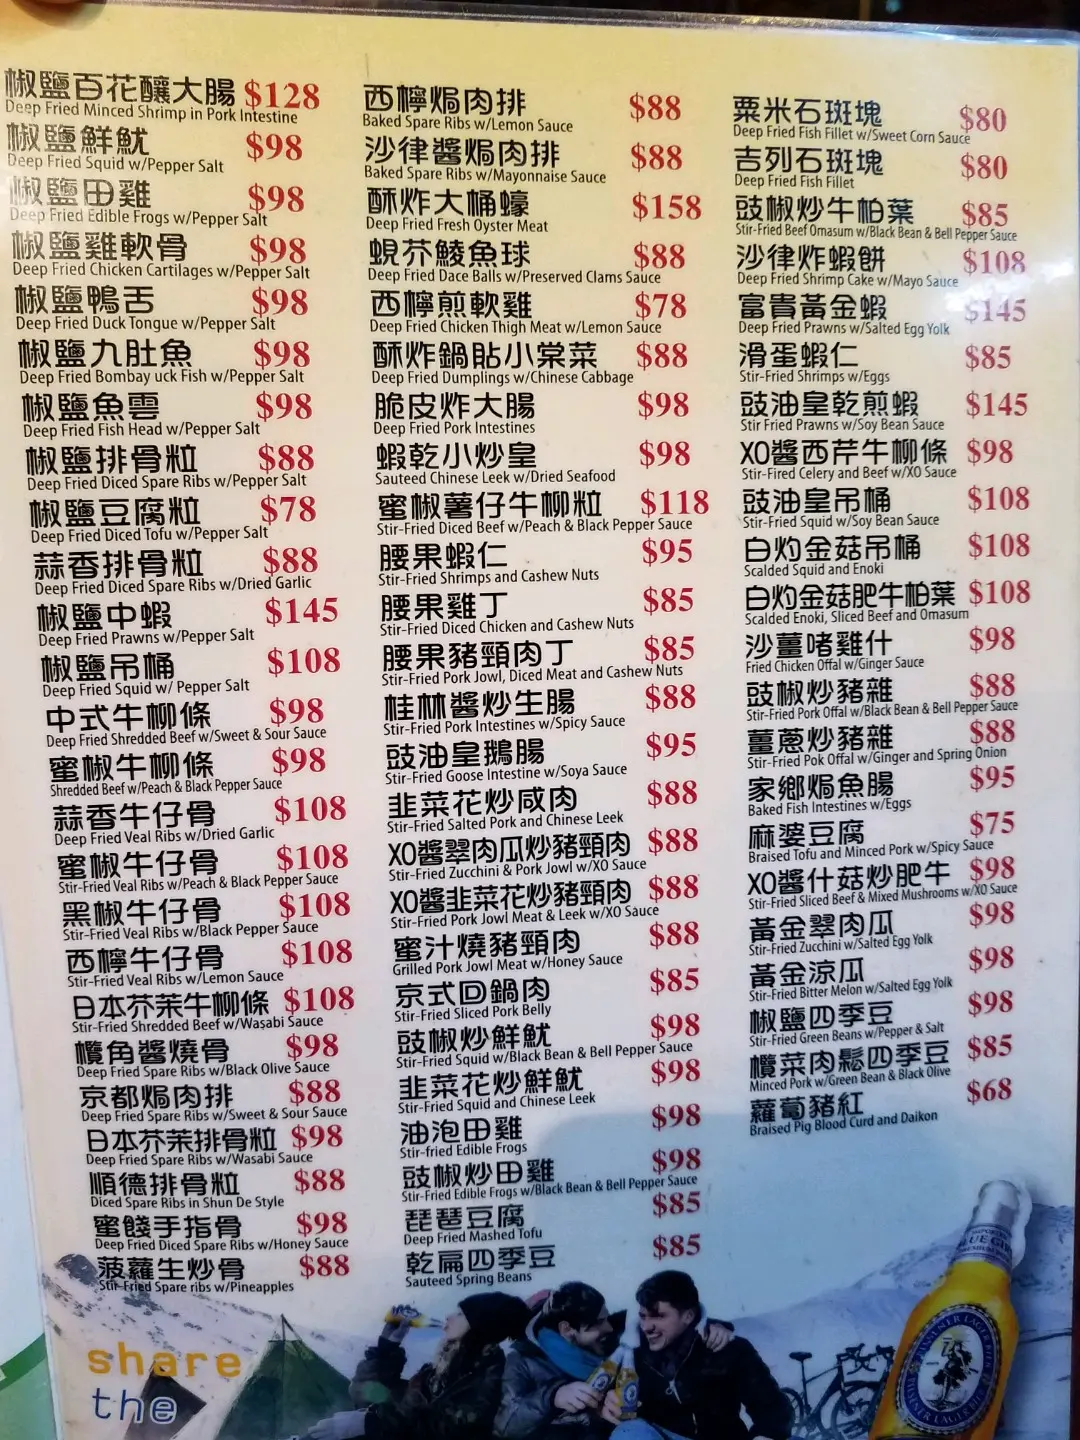 椒鹽百花釀大腸 $128
Deep Fried Minced Shrimp in Pork Intestine
椒鹽鮮魷 $98
Deep Fried Squid w/Pepper Salt
椒鹽田雞 $98
Deep Fried Edible Frogs w/Pepper Salt
椒鹽雞軟骨 $98
Deep Fried Chicken Cartilages w/Pepper Salt
椒鹽鴨舌 $98
Deep Fried Duck Tongue w/Pepper Salt
椒鹽九肚魚 $98
Deep Fried Bombay uck Fish w/Pepper Salt
椒鹽魚雲 $98
Deep Fried Fish Head w/Pepper Salt
椒鹽排骨粒 $88
Deep Fried Diced Spare Ribs w/Pepper Salt
椒鹽豆腐粒 $78
Deep Fried Diced Tofu w/Pepper Salt
蒜香排骨粒 $88
Deep Fried Diced Spare Ribs w/Dried Garlic
椒鹽中蝦 $145
Deep Fried Prawns w/Pepper Salt
椒鹽吊桶 $108
Deep Fried Squid w/ Pepper Salt
中式牛柳條 $98
Deep Fried Shredded Beef w/Sweet & Sour Sauce
蜜椒牛柳條 $98
Shredded Beef w/Peach & Black Pepper Sauce
蒜香牛仔骨 $108
Deep Fried Veal Ribs w/Dried Garlic
蜜椒牛仔骨 $108
Stir-Fried Veal Ribs w/Peach & Black Pepper Sauce
黑椒牛仔骨 $108
Stir-Fried Veal Ribs w/Black Pepper Sauce
西檸牛仔骨 $108
Stir-Fried Veal Ribs w/Lemon Sauce
日本芥茉牛柳條 $108
Stir-Fried Shredded Beef w/Wasabi Sauce
欖角醬燒骨 $98
Deep Fried Spare Ribs w/Black Olive Sauce
京都焗肉排 $88
Deep Fried Spare Ribs w/Sweet & Sour Sauce
日本芥茉排骨粒 $98
Deep Fried Spare Ribs w/Wasabi Sauce
順德排骨粒 $88
Diced Spare Ribs in Shun De Style
蜜餞手指骨 $98
Deep Fried Diced Spare Ribs w/Honey Sauce
菠蘿生炒骨 $88
Stir-Fried Spare ribs w/Pineapples
西檸焗肉排 $88
Baked Spare Ribs w/Lemon Sauce
沙律醬焗肉排 $88
Baked Spare Ribs w/Mayonnaise Sauce
酥炸大桶蠔 $158
Deep Fried Fresh Oyster Meat
蜆芥鯪魚球 $88
Deep Fried Dace Balls w/Preserved Clams Sauce
西檸煎軟雞 $78
Deep Fried Chicken Thigh Meat w/Lemon Sauce
酥炸鍋貼小棠菜 $88
Deep Fried Dumplings w/Chinese Cabbage
脆皮炸大腸 $98
Deep Fried Pork Intestines
蝦乾小炒皇 $98
Sauteed Chinese Leek w/Dried Seafood
蜜椒薯仔牛柳粒 $118
Stir-Fried Diced Beef w/Peach & Black Pepper Sauce
腰果蝦仁 $95
Stir-Fried Shrimps and Cashew Nuts
腰果雞丁 $85
Stir-Fried Diced Chicken and Cashew Nuts
腰果豬頸肉丁 $85
Stir-Fried Pork Jowl, Diced Meat and Cashew Nuts
桂林醬炒生腸 $88
Stir-Fried Pork Intestines w/Spicy Sauce
豉油皇鵝腸 $95
Stir-Fried Goose Intestine w/Soya Sauce
韭菜花炒咸肉 $88
Stir-Fried Salted Pork and Chinese Leek
XO醬翠肉瓜炒豬頸肉 $88
Stir-Fried Zucchini & Pork Jowl w/XO Sauce
XO醬韭菜花炒豬頸肉 $88
Stir-Fried Pork Jowl Meat & Leek w/XO Sauce
蜜汁燒豬頸肉 $88
Grilled Pork Jowl Meat w/Honey Sauce
京式回鍋肉 $85
Stir-Fried Sliced Pork Belly
豉椒炒鮮魷 $98
Stir-Fried Squid w/Black Bean & Bell Pepper Sauce
韭菜花炒鮮魷 $98
Stir-Fried Squid and Chinese Leek
油泡田雞 $98
Stir-fried Edible Frogs
豉椒炒田雞 $98
Stir-Fried Edible Frogs w/Black Bean & Bell Pepper Sauce
琵琶豆腐 $85
Deep Fried Mashed Tofu
乾扁四季豆 $85
Sauteed Spring Beans
粟米石斑塊 $80
Deep Fried Fish Fillet w/Sweet Corn Sauce
吉列石斑塊 $80
Deep Fried Fish Fillet
豉椒炒牛柏葉 $85
Stir-Fried Beef Omasum w/Black Bean & Bell Pepper Sauce
沙律炸蝦餅 $108
Deep Fried Shrimp Cake w/Mayo Sauce
富貴黃金蝦 $145
Deep Fried Prawns w/Salted Egg Yolk
滑蛋蝦仁 $85
Stir-Fried Shrimps w/Eggs
豉油皇乾煎蝦 $145
Stir Fried Prawns w/Soy Bean Sauce
XO醬西芹牛柳條 $98
Stir-Fired Celery and Beef w/XO Sauce
豉油皇吊桶 $108
Stir-Fried Squid w/Soy Bean Sauce
白灼金菇吊桶 $108
Scalded Squid and Enoki
白灼金菇肥牛柏葉 $108
Scalded Enoki, Sliced Beef and Omasum
沙薑啫雞什 $98
Fried Chicken Offal w/Ginger Sauce
豉椒炒豬雜 $88
Stir-Fried Pork Offal w/Black Bean & Bell Pepper Sauce
薑蔥炒豬雜 $88
Stir-Fried Pok Offal w/Ginger and Spring Onion
家鄉焗魚腸 $95
Baked Fish Intestines w/Eggs
麻婆豆腐 $75
Braised Tofu and Minced Pork w/Spicy Sauce
XO醬什菇炒肥牛 $98
Stir-Fried Sliced Beef & Mixed Mushrooms w/XO Sauce
黃金翠肉瓜 $98
Stir-Fried Zucchini w/Salted Egg Yolk
黃金涼瓜 $98
Stir-Fried Bitter Melon w/Salted Egg Yolk
椒鹽四季豆 $98
Stir-Fried Green Beans w/Pepper & Salt
欖菜肉鬆四季豆 $85
Minced Pork w/Green Bean & Black Olive
蘿蔔豬紅 $68
Braised Pig Blood Curd and Daikon
share
the